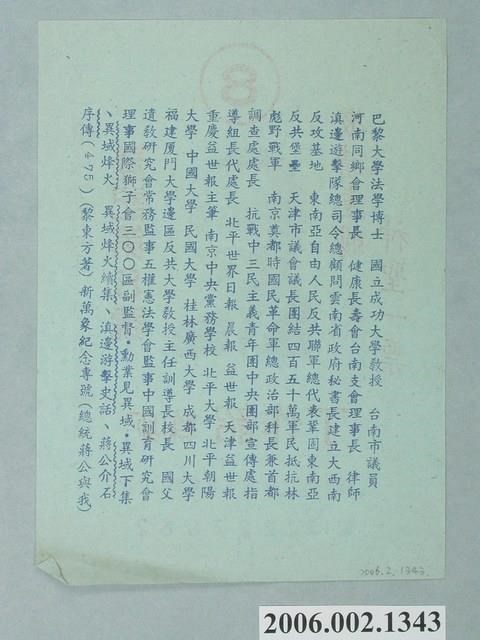 巴黎大學法學博士　國立成功大學教授　台南市議員
河南同鄉會理事長　健康長壽會台南支會理事長　律師
滇邊遊擊隊總司令總顧問雲南省政府秘書長建立大西南
反攻基地　東南亞自由人民反共聯軍總代表鞏固東南亞
反共堡壘　天津市議會議長團結四百五十萬軍民抵抗林
彪野戰軍　南京奠都時國民革命軍總政治部科長兼首都
調查處處長　抗戰中三民主義青年團中央團部宣傳處指
導組長代處長　北平世界日報　晨報　益世報　天津益世報
重慶益世報主筆　南京中央黨務學校　北平大學　北平朝陽
大學　中國大學　民國大學　桂林廣西大學　成都四川大學
福建厦門大學邊區反共大學教授主任訓導長校長　國父
遺教研究會常務監事五權憲法學會監事中國訓育研究會
理事國際獅子會三〇〇區副監督・勳業見異域・異域下集
、異域烽火　異域烽火續集、滇邊游擊史話、蔣公介石
序傳(475)(黎東方著)新萬象紀念專號(總統蔣公與我)
8
2006.2.1343.
2006.002.1343